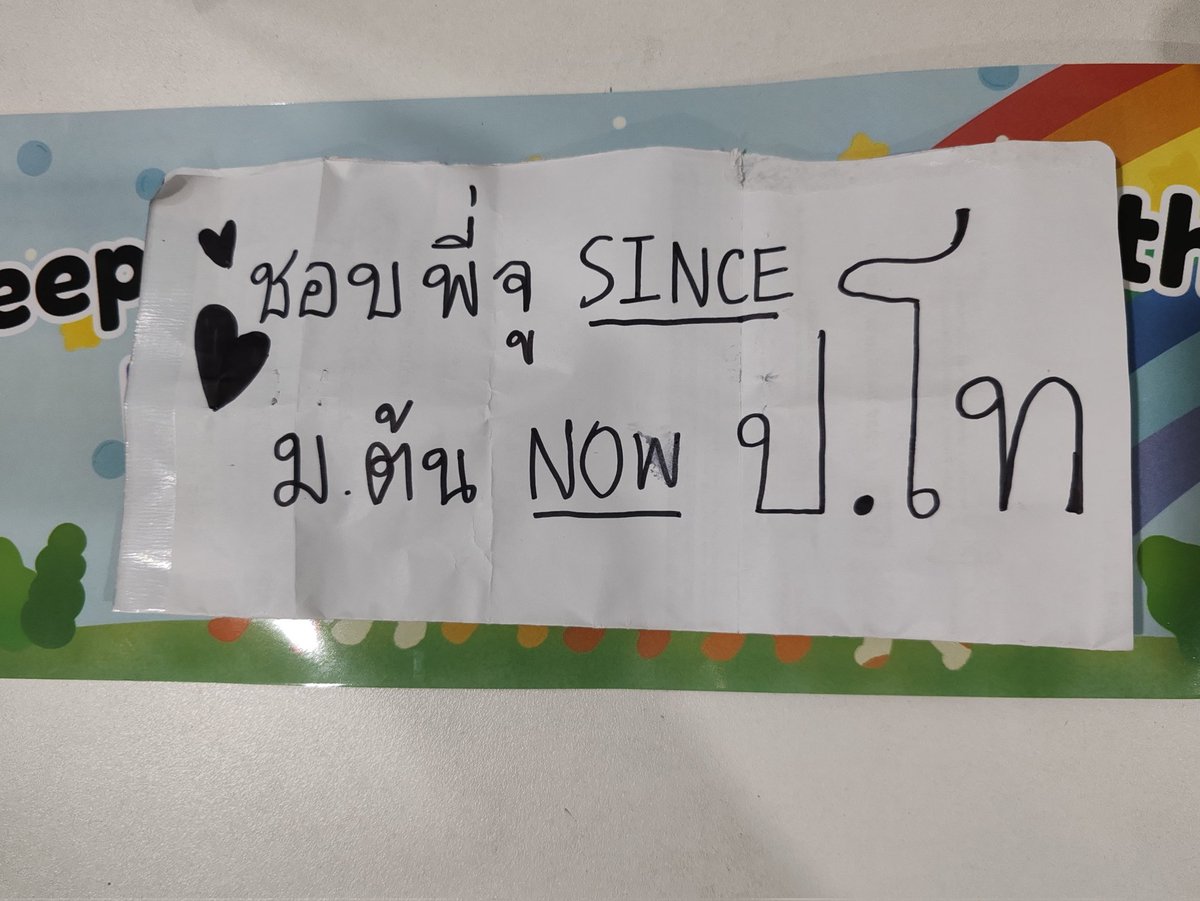 ชอบพี่จู SINCE
ม.ต้น NOW ป.โท
eep
th